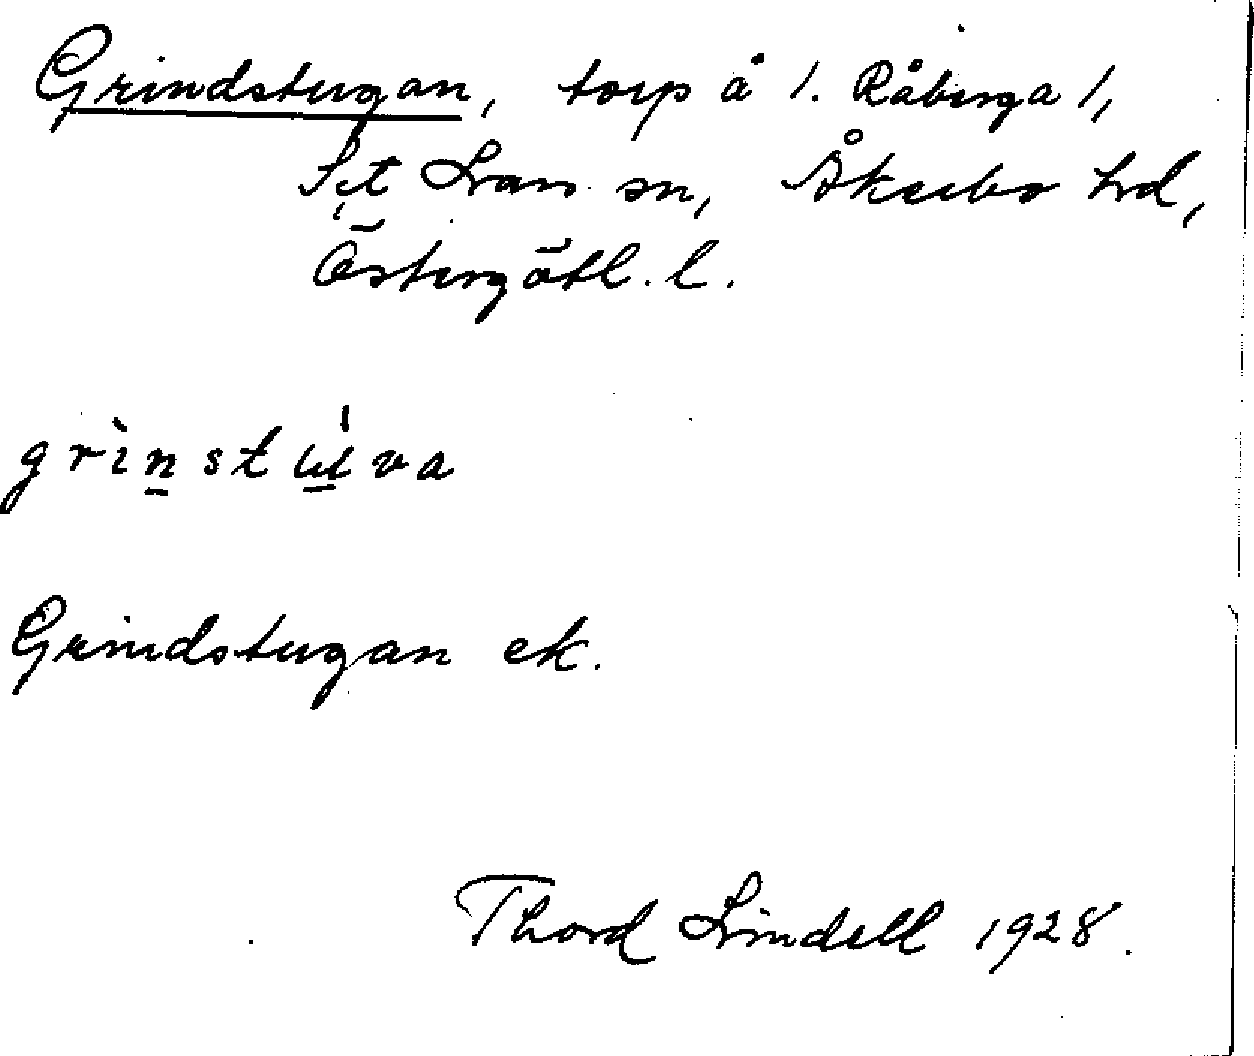 Grindstugan, torp å 1. Råberga 1,
S:t Lars sn, Åkerbo hd,
Östergötl. l.
grìnstu̇va
Grindstugan ek.
Thord Lindell 1928.